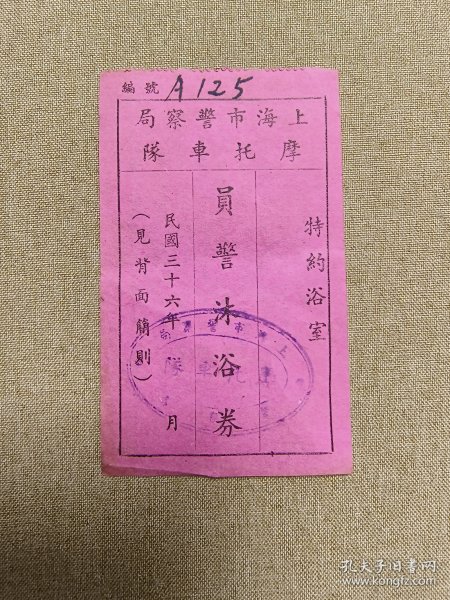 編號 A 125
上海市警察局
摩托車隊
特約浴室
員警沐浴券
民國三十六年 月
（見背面簡則）
隊車托
孔夫子旧书网
www.kongfz.com